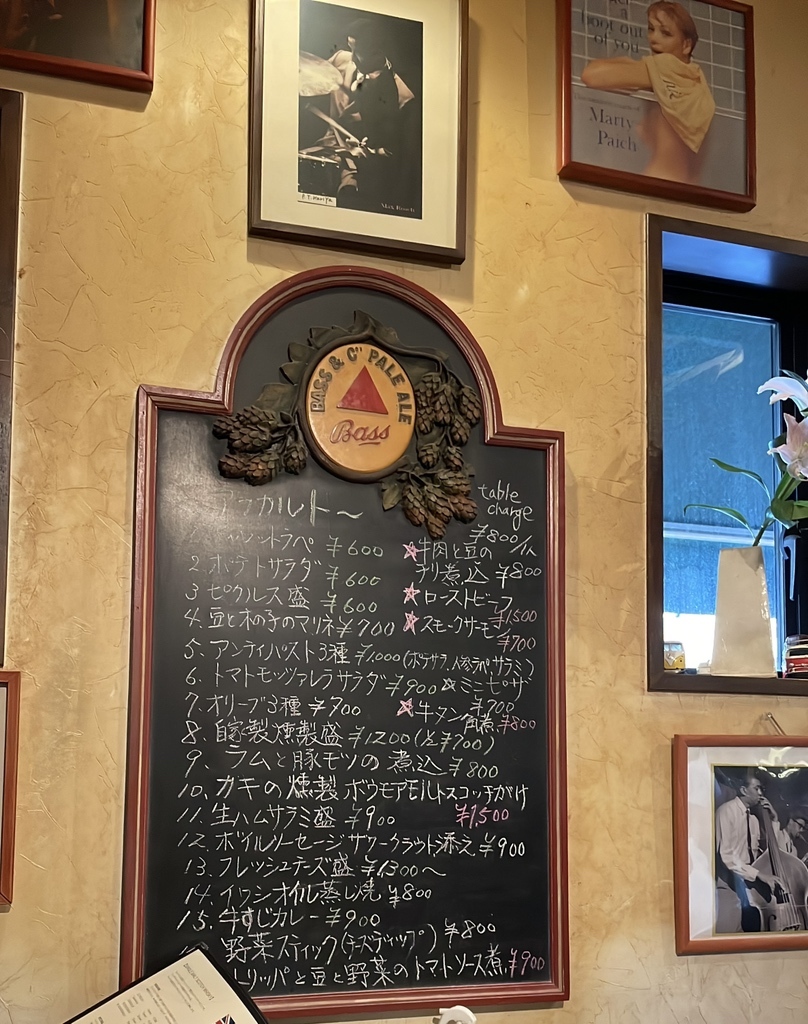 a
boot out
of you
Marty
Paich
Max Roach
BASS & Cº PALE ALE
Bass
アラカルト～
table
charge
¥800/人
キャロットラペ ¥600
2. ポテトサラダ ¥600
3 ピクルス盛 ¥600
4. 豆と木の子のマリネ ¥700
5. アンティパスト3種 ¥1,000 (ポテサラ、人参ラペ、サラミ)
6. トマトモッツァレラサラダ ¥900
7. オリーブ3種 ¥700
8. 自家製燻製盛 ¥1200 (½ ¥700)
9. ラムと豚モツの煮込 ¥800
10. カキの燻製 ボウモアモルトスコッチがけ ¥1,500
11. 生ハムサラミ盛 ¥900
12. ボイルソーセージ ザワークラウト添え ¥900
13. フレッシュチーズ盛 ¥1300～
14. イワシオイル蒸し焼 ¥800
15. 牛すじカレー ¥900
野菜スティック(チーズディップ) ¥800
トリッパと豆と野菜のトマトソース煮 ¥900
☆牛肉と豆の
チリ煮込 ¥800
☆ローストビーフ
¥1,500
☆スモークサーモン
¥700
☆ミニピザ
¥700
☆牛タン角煮 ¥800